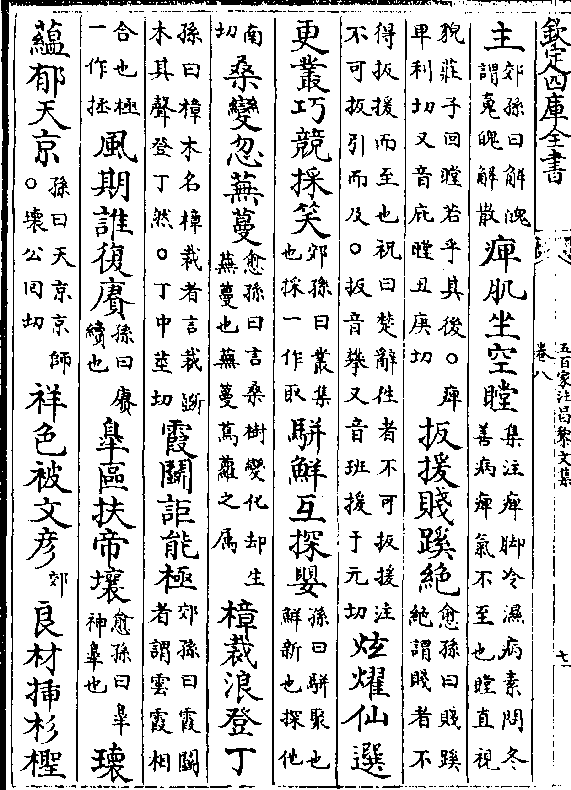 欽定四庫全書
五百家注昌黎文集
卷八
七
主郊孫曰解魄謂䰟魄解散痺肌坐空瞠集注痺脚冷濕病素問冬善病痺氣不至也瞠直視
貌莊子回瞠若乎其後○痺畀利切又音庇瞠丑庚切扳援賤蹊絶愈孫曰賤蹊絶謂賤者不
得扳援而至也祝曰楚辭往者不可扳援注不可扳引而及○扳音攀又音班援于元切炫燿仙選
更叢巧競採笑郊孫曰叢集也採一作取駢鮮互探嬰孫曰駢聚也鮮新也探他
南切桑變忽蕪蔓愈孫曰言桑樹變化却生蕪蔓也蕪蔓蔦蘿之属樟裁浪登丁
孫曰樟木名樟裁者言裁斲木其聲登丁然○丁中莖切霞鬬詎能極郊孫曰霞鬬者謂雲霞相
合也極一作拯風期誰復賡孫曰賡續也臯區扶帝壤愈孫曰臯神臯也瓌
蘊郁天京孫曰天京京師○瓌公回切祥色被文彦郊良材揷杉檉